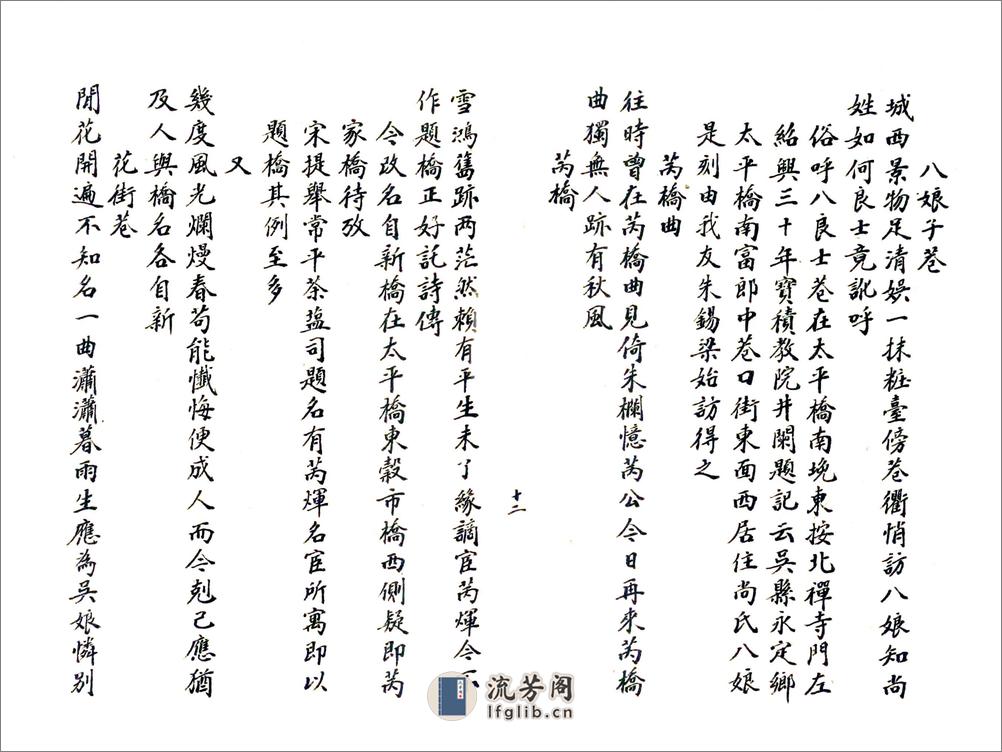 八娘子巷
城西景物足清娛一抹粧臺傍巷衢悄訪八娘知尚
姓如何良士竟訛呼
俗呼八良士巷在太平橋南堍東按北禪寺門左
紹興三十年寶積教院井闌題記云吳縣永定鄉
太平橋南富郎中巷口街東面西居住尚氏八娘
是刻由我友朱錫梁始訪得之
芮橋曲
往時曾在芮橋曲見倚朱欄憶芮公今日再來芮橋
曲獨無人跡有秋風
芮橋
十二
雪鴻舊跡两茫然賴有平生未了緣謫宦芮煇今
作題橋正好託詩傳
今改名自新橋在太平橋東穀市橋西側疑即芮
家橋待攷
宋提舉常平茶盐司題名有芮煇名宦所寓即以
題橋其例至多
又
幾度風光爛熳春苟能懺悔便成人而今剋己應猶
及人與橋名各自新
花街巷
閒花開遍不知名一曲瀟瀟暮雨生應為吳娘憐別
流芳阁
lfglib.cn